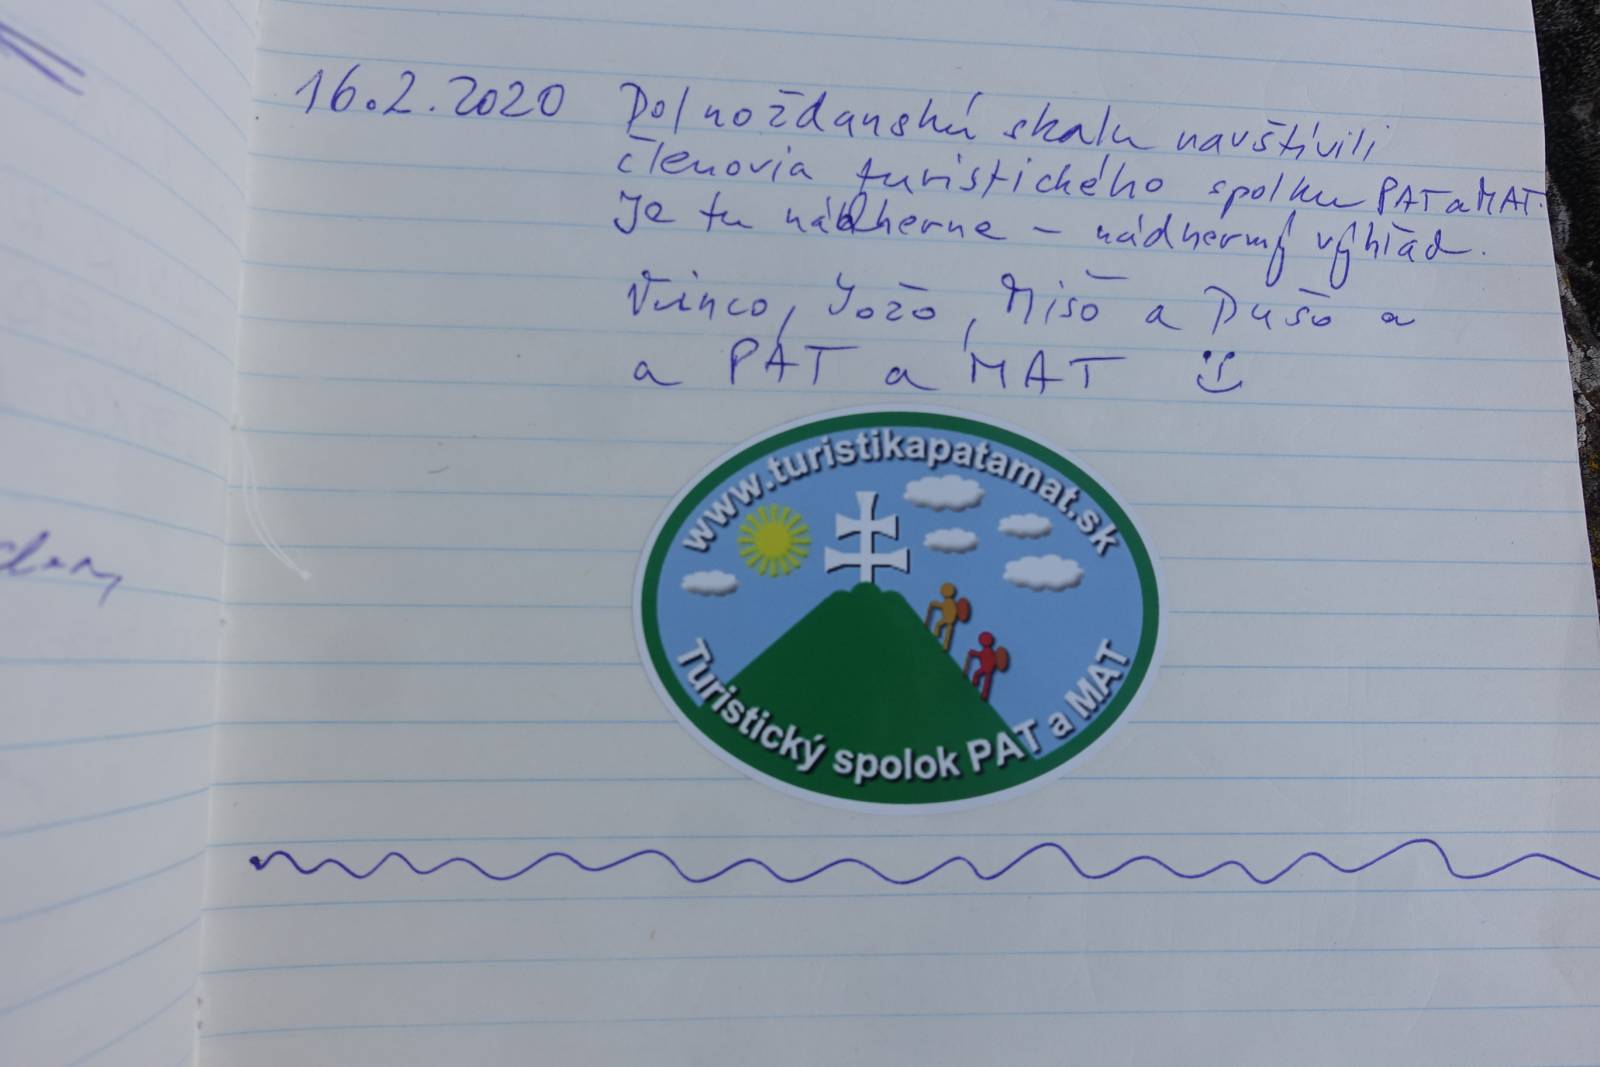 16.2.2020 Dolnoždanskú skalu navštívili
členovia turistického spolku PAT a MAT.
Je tu nádherne – nádherný výhľad.
Vinco, Jožo, Mišo a Dušo a
a PAT a MAT
www.turistikapatamat.sk
Turistický spolok PAT a MAT